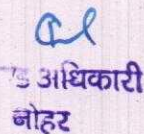 अधिकारी
नोहर